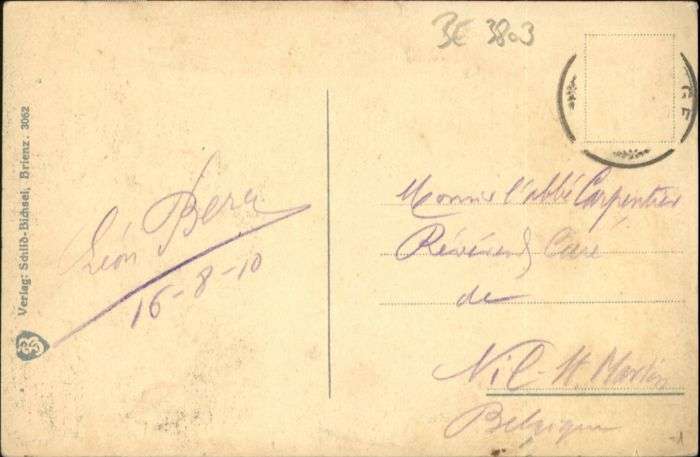 BE 3803
Verlag: Schild-Bichsel, Brienz. 3062
Léon Bera
16-8-10
l'abbé Carpentier
Révérend Curé
de
Nil-St. Martin
Belgique